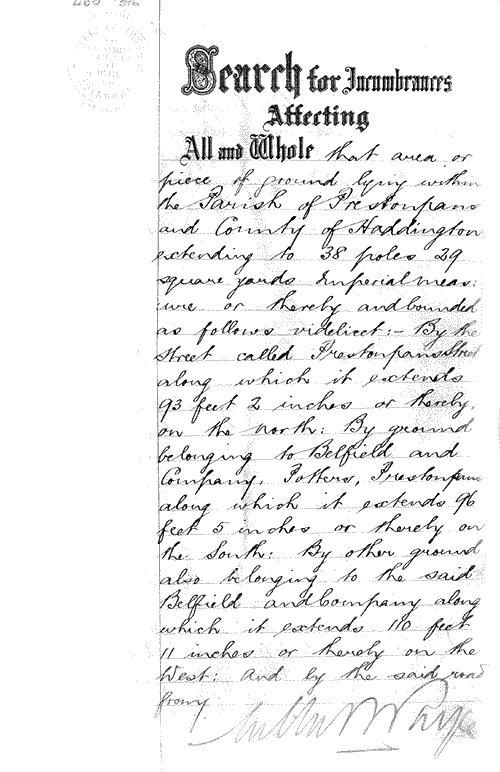 Search for Incumbrances
Affecting
All and Whole that area or
piece of ground lying within
the Parish of Prestonpans
and County of Haddington
extending to 38 poles 29
square yards Imperial meas:
ure or thereby and bounded
as follows videlicet:- By the
street called Prestonpans Street
along which it extends
93 feet 2 inches or thereby,
on the north: By ground
belonging to Belfield and
Company, Potters, Prestonpans
along which it extends 96
feet 5 inches or thereby on
the South: By other ground
also belonging to the said
Belfield and Company along
which it extends 110 feet
11 inches or thereby on the
West: and by the said road
from